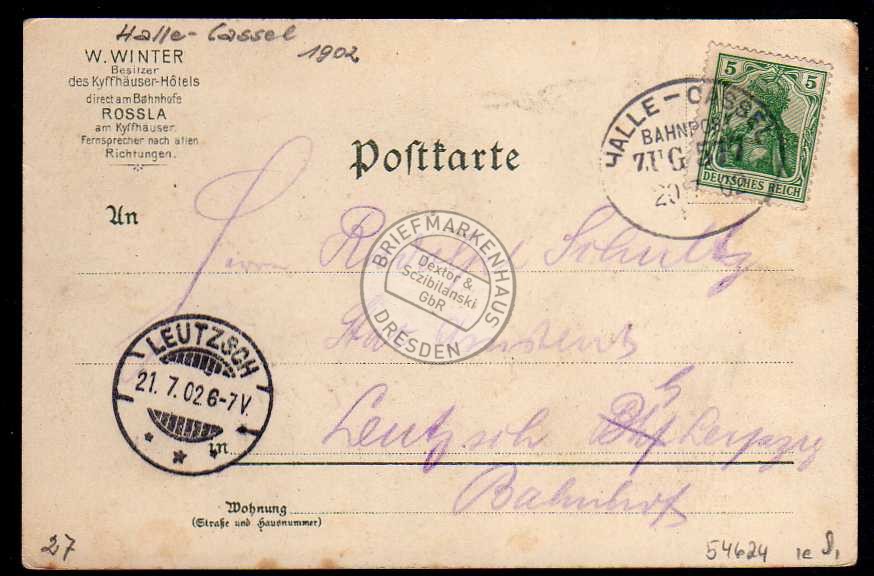 Halle-Cassel
1902
W. WINTER
Besitzer
des Kyffhäuser-Hôtels
direct am Bahnhofe
ROSSLA
am Kyffhäuser.
Fernsprecher nach allen
Richtungen.
5 5
DEUTSCHES REICH
HALLE - CASSEL
BAHNPOST
ZUG
Postkarte
An
Herrn Schultz
BRIEFMARKENHAUS
Dextor &
Sczibilanski
GbR
DRESDEN
LEUTZSCH
21. 7. 02 6-7V.
in
Leutzsch Leipzig
Bahnhof
Wohnung
(Straße und Hausnummer)
27
54624